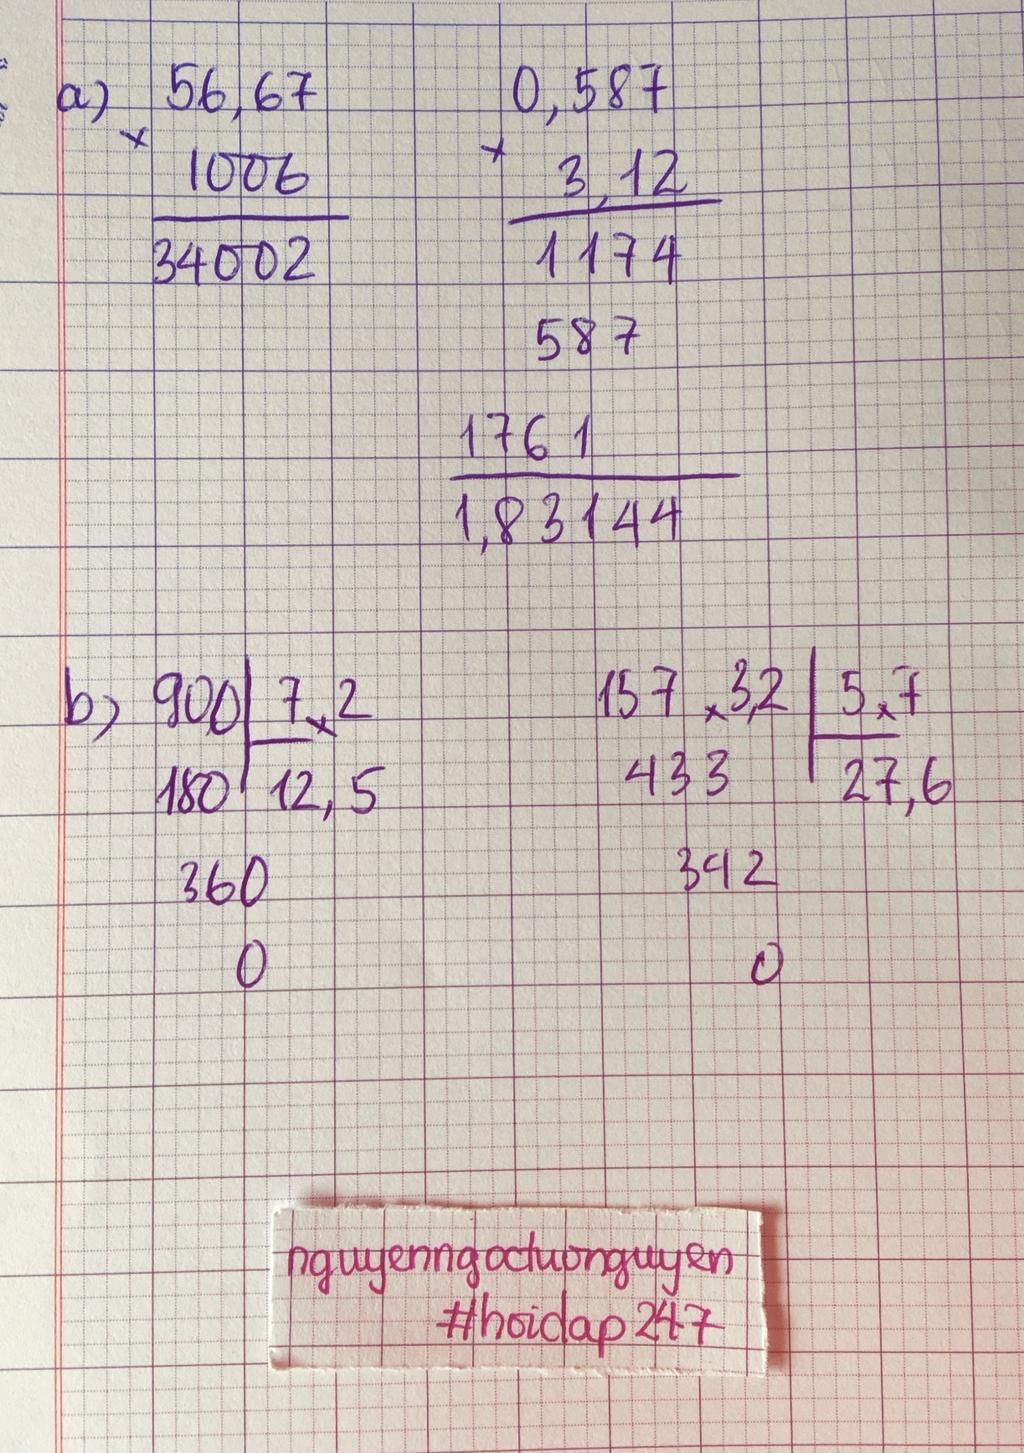 a) 56,67
× 1006
34002
0,587
× 3,12
1174
587
1761
1,83144
b) 900 7×2
180 12,5
360
0
157×3,2 5×7
433 27,6
342
0
nguyenngoctuonguyen
#hoidap247